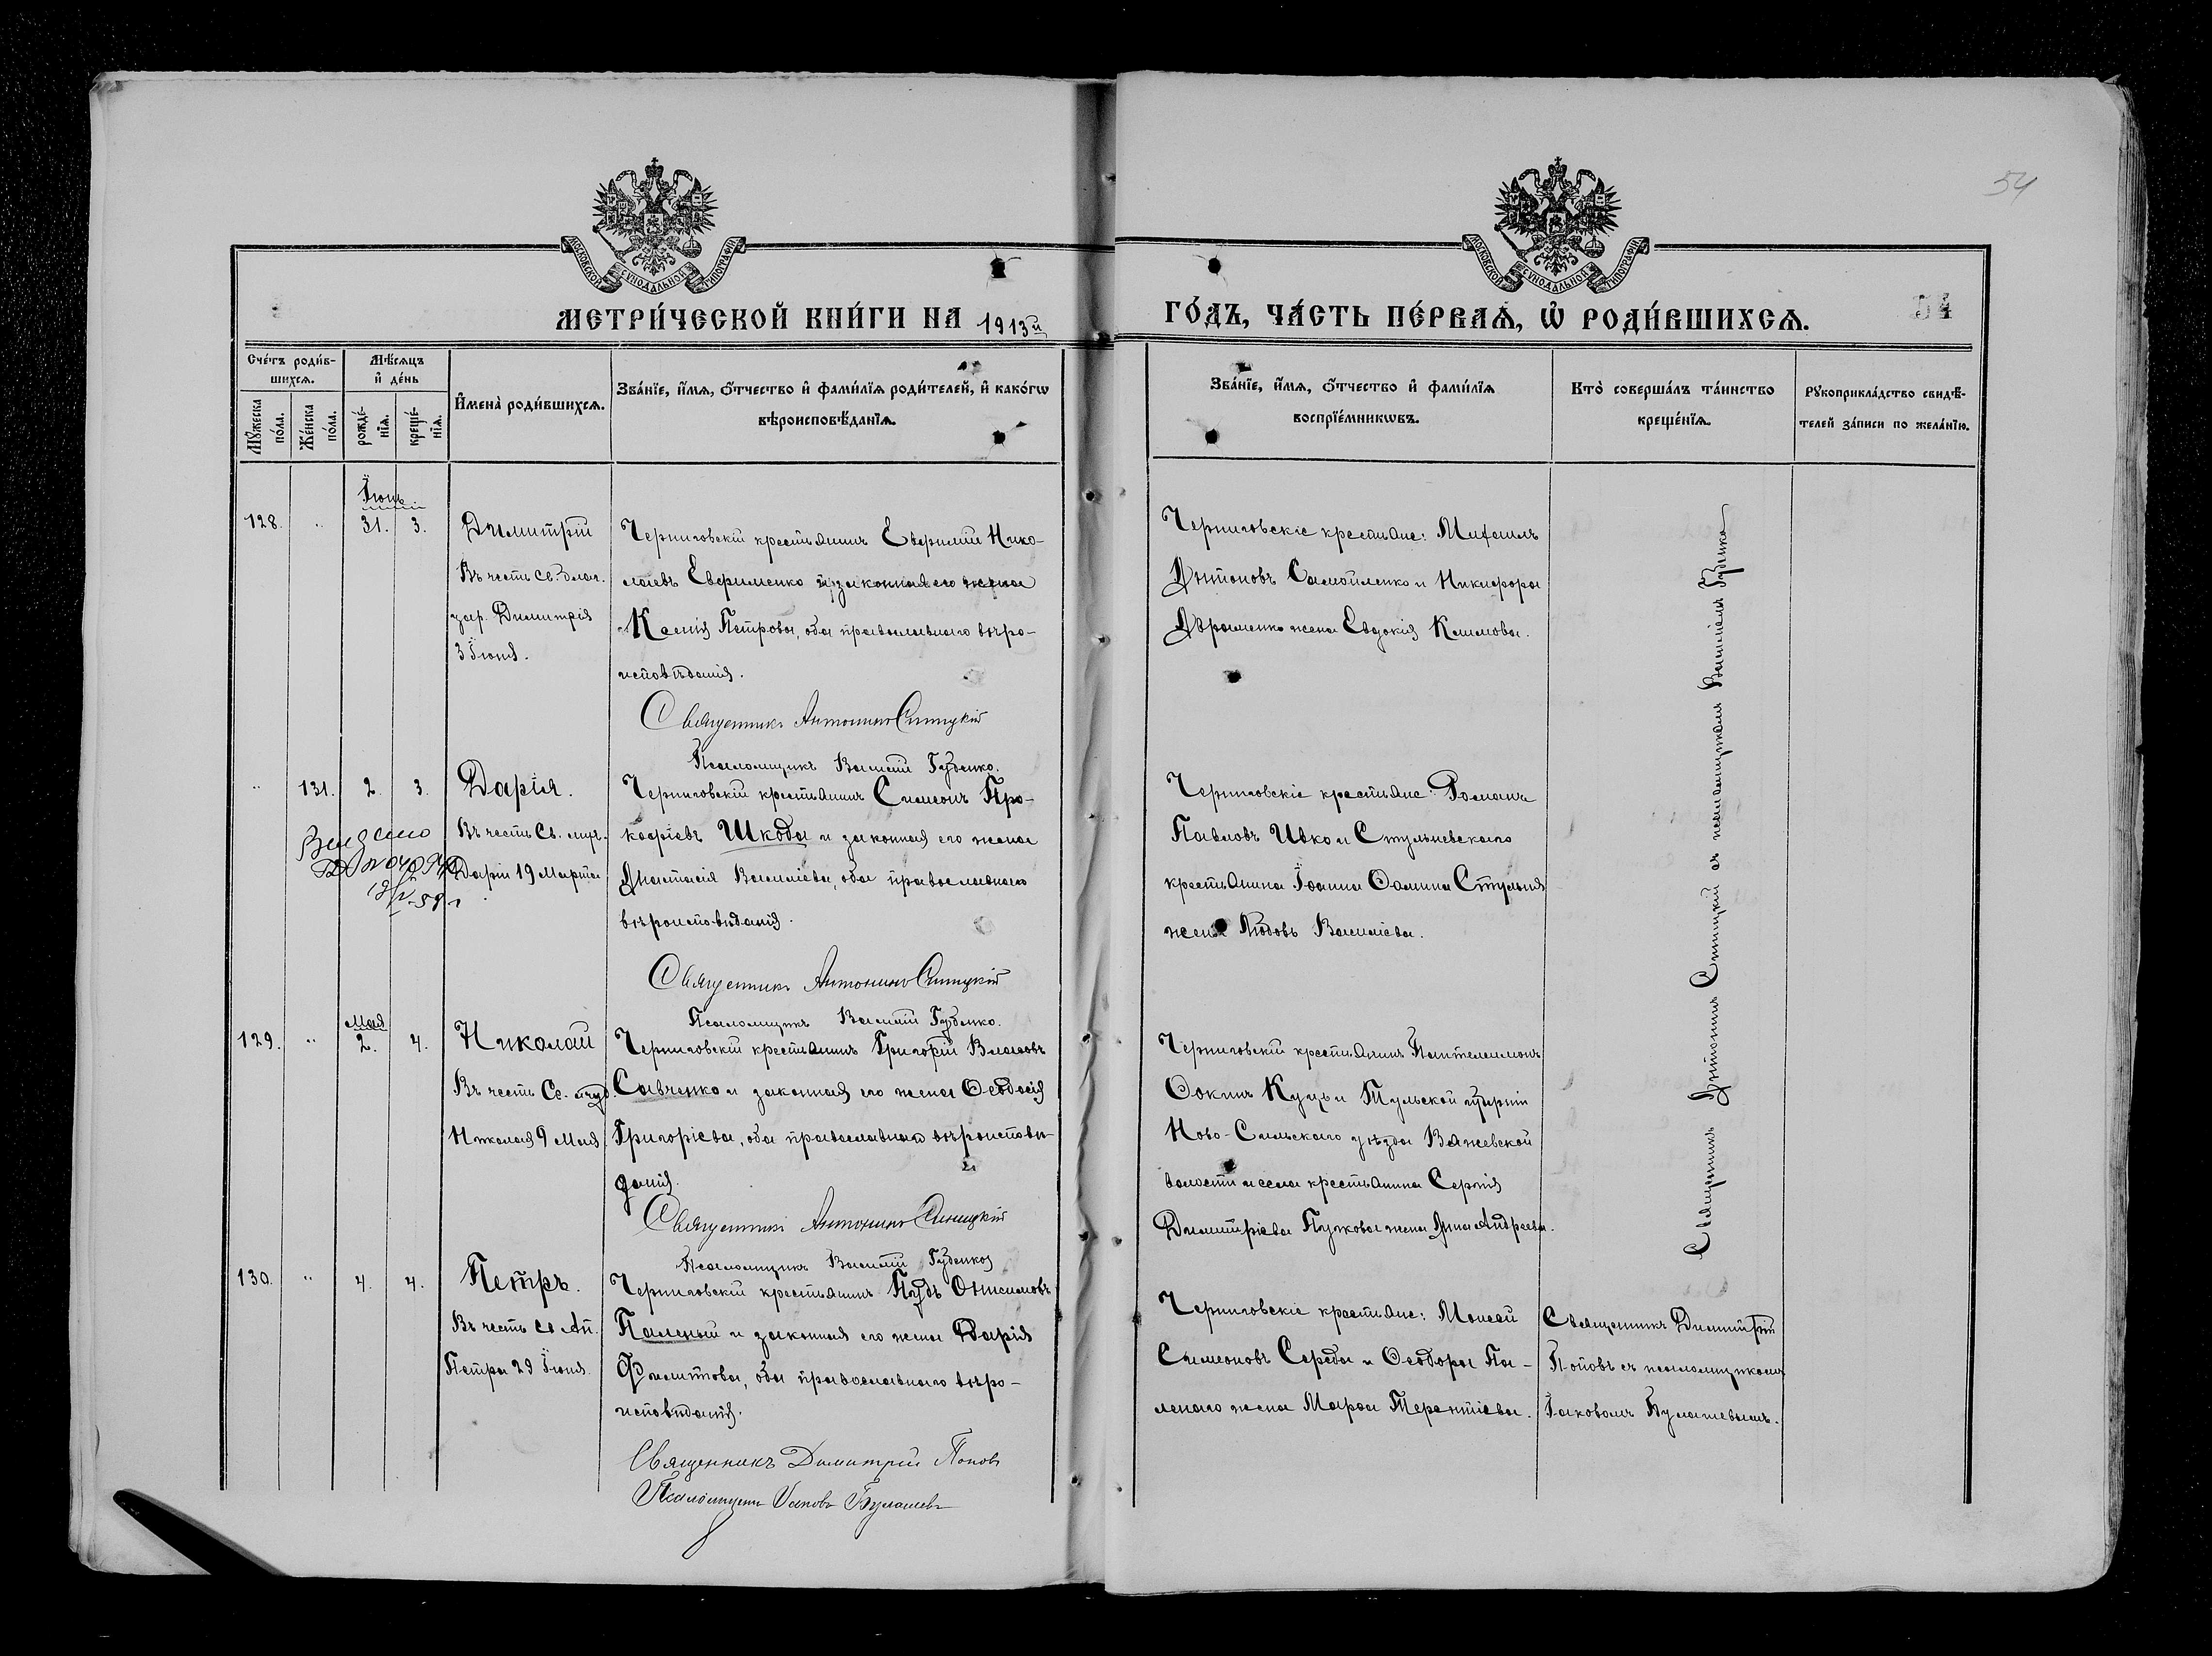 54
МОСКОВСКОЙ СѴНОДАЛЬНОЙ ТИПОГРАФІИ
МОСКОВСКОЙ СѴНОДАЛЬНОЙ ТИПОГРАФІИ
МЕТРИ́ЧЕСКОЙ КНИ́ГИ НА 1913й ГО́ДЪ, ЧА́СТЬ ПЕ́РВАѦ, Ѡ҆ РОДИ́ВШИХСѦ.
54
Сче́тъ роди́в-
шихсѧ.
Мꙋ́жеска по́ла.
Же́нска по́ла.
Мѣ́сѧцъ
и҆ де́нь
рожде́-
нїѧ.
креще́-
нїѧ.
И҆мена̀ роди́вшихсѧ.
Зва́нїе, и҆́мѧ, ѻ҆́тчество и҆ фами́лїѧ роди́телей, и҆ како́гѡ
вѣроисповѣ́данїѧ.
Зва́нїе, и҆́мѧ, ѻ҆́тчество и҆ фами́лїѧ
воспрїе́мникѡвъ.
Кто̀ соверша́лъ та́инство
креще́нїѧ.
Рꙋкоприкла́дство свидѣ́-
телей за́писи по жела́нїю.
Іюнь
128. „ 31. 3. Димитрій
Въ честь св. благ.
цар. Димитрія
3 Іюня.
Черниговскій крестьянинъ Евфимій Нико-
лаевъ Евфименко и законная его жена
Ксенія Петрова, оба православнаго вѣро-
исповѣданія.
Священникъ Антонинъ Синицкій
Псаломщикъ Василій Губенко.
Черниговскіе крестьяне: Михаилъ
Антоновъ Самойленко и Никифора
Авраменко жена Евдокія Климова.
„ 131. 2. 3. Дарія.
Въ честь Св. муч.
Даріи 19 Марта
Выдано
Черниговскій крестьянинъ Симеонъ Про-
кофіевъ Шкода и законная его жена
Анастасія Василіева, оба православнаго
вѣроисповѣданія.
Священникъ Антонинъ Синицкій
Псаломщикъ Василій Губенко.
Черниговскіе крестьяне: Романъ
Павловъ Ивко и
крестьянина Іоанна
жена Любовь Василіева.
Мая
129. „ 2. 4. Николай
Въ честь Св. и чуд.
Николая 9 Мая
Черниговскій крестьянинъ Григорій Власовъ
Савченко и законная его жена Ѳеодосія
Григоріева, оба православнаго вѣроисповѣ-
данія.
Священникъ Антонинъ Синицкій
Псаломщикъ Василій Губенко
Черниговскій крестьянинъ Пантелеимонъ
Ѳокинъ Куцъ и Тульской губерніи
Ново-Сильскаго уѣзда Вяжевской
волости и села крестьянина Сергія
Димитріева Пужкова жена Анна Андреева.
Священникъ Антонинъ Синицкій съ псаломщикомъ Василіемъ Губенко
130. „ 4. 4. Петръ.
Въ честь св Ап.
Петра 29 Іюня.
Черниговскій крестьянинъ Пудъ Онисимовъ
Паленый и законная его жена Дарія
Филиппова, оба православнаго вѣро-
исповѣданія.
Священникъ Димитрій Поповъ
Псаломщикъ Іаковъ Булашевъ
Черниговскіе крестьяне: Моисей
Симеоновъ Середа и Ѳеодора Па-
ленаго жена Марѳа Терентіева.
Священникъ Димитрій
Поповъ съ псаломщикомъ
Іаковомъ Булашевымъ.